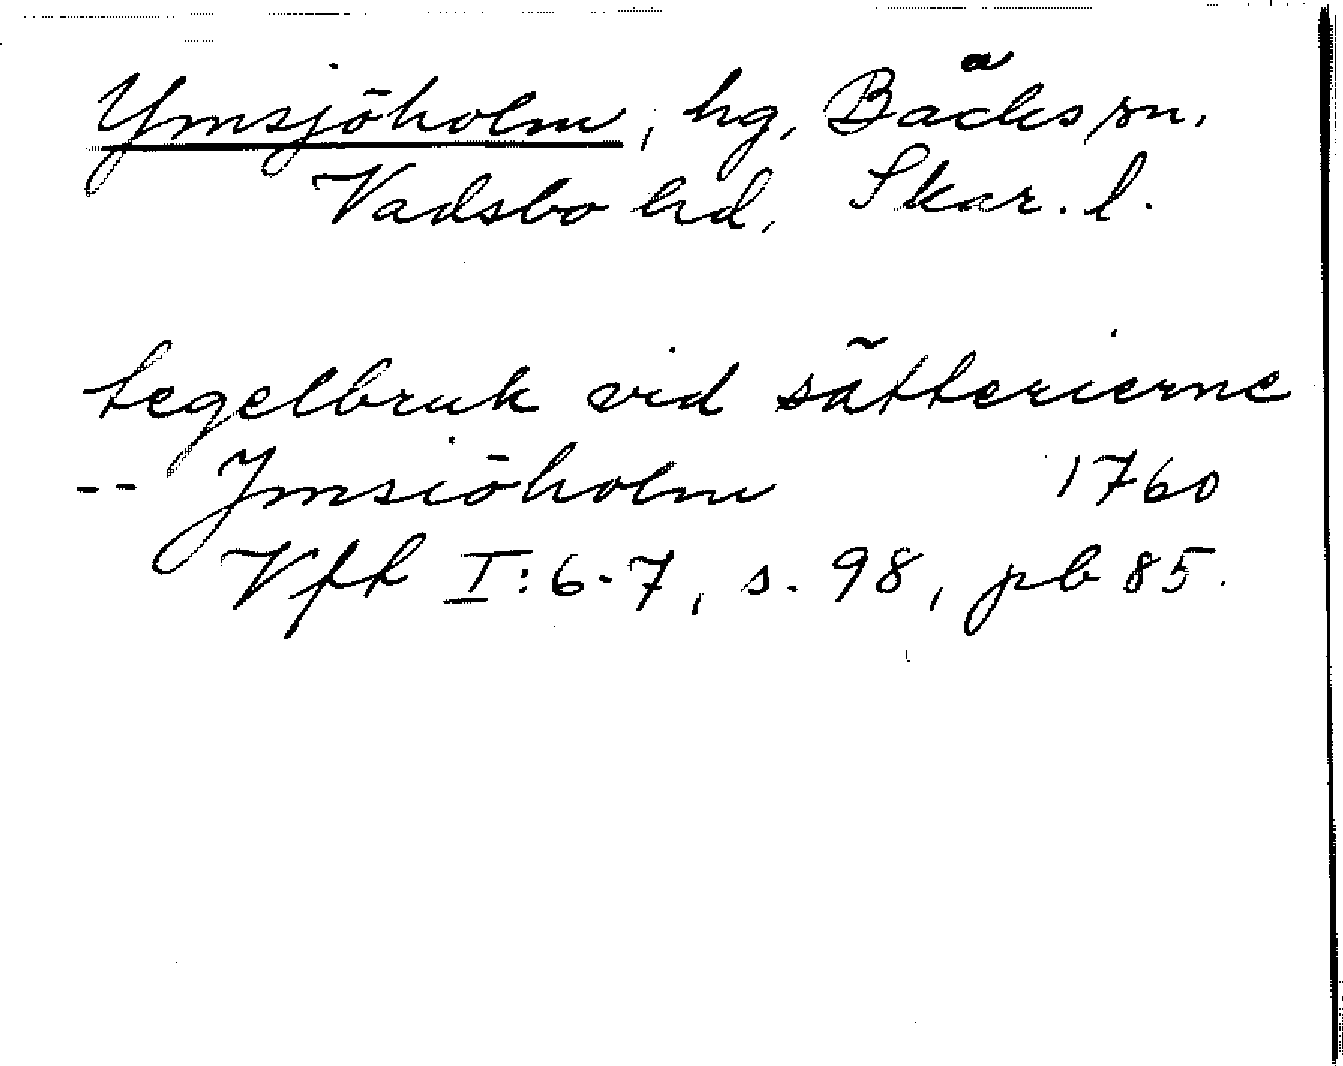 Ymsjöholm, hg, Bäcks sn,
Vadsbo hd, Skar. l.
tegelbruk vid sätterierne
-- Ymsiöholm 1760
Vft I:6-7, s. 98, pb 85.